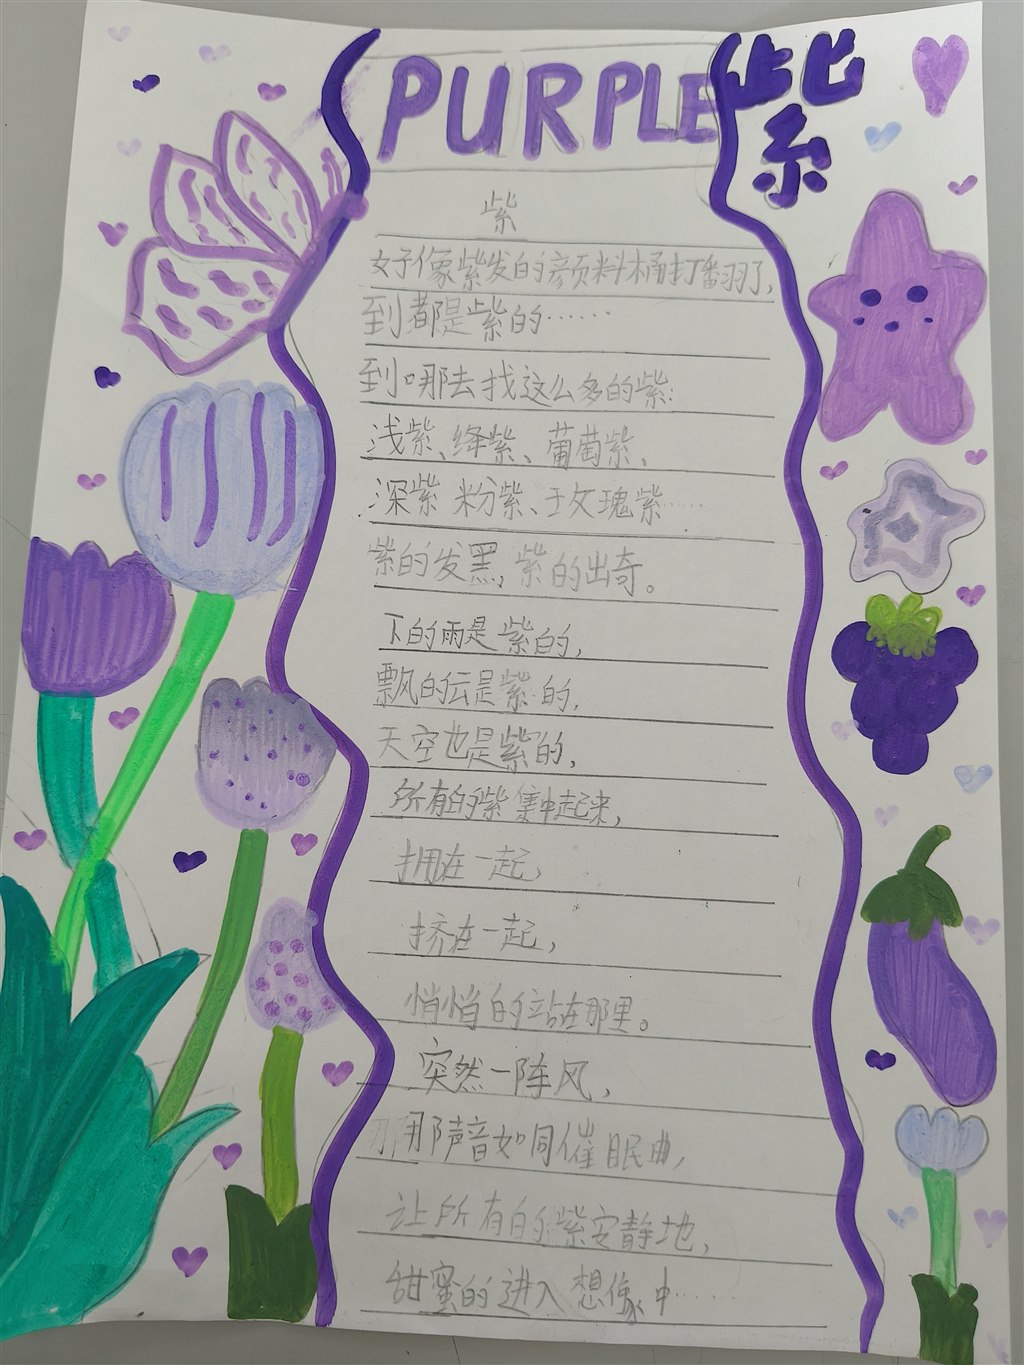 PURPLE 紫
紫
好像紫发的颜料桶打翻了,
到都是紫的……
到哪去找这么多的紫:
浅紫、绛紫、葡萄紫、
深紫 粉紫、玫瑰紫……
紫的发黑,紫的出奇。
下的雨是紫的,
飘的云是紫的,
天空也是紫的,
所有的紫集中起来,
拥在一起,
挤在一起,
悄悄的站在那里。
突然一阵风,
用那声音如同催眠曲,
让所有的紫安静地,
甜蜜的进入想像中……